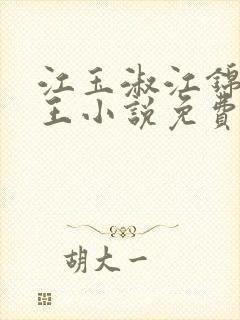 江玉淑江锦
王小說免費
胡大一